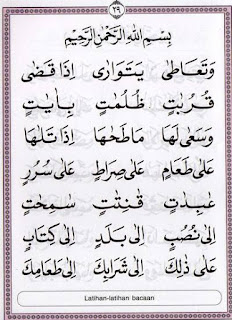 ٢٩
بِسْمِ اللهِ الرَّحْمٰنِ الرَّحِيْمِ
وَتَعَاطٰى يَتَوَارٰى إِذَا قَضٰى
قُرُبٰتٍ ظُلُمٰتٍ بِاٰيٰتٍ
وَسَعٰى لَهَا مَاطَحٰهَا إِذَا تَلٰهَا
عَلٰى طَعَامٍ عَلٰى صِرَاطٍ عَلٰى سُرُرٍ
عٰبِدٰتٍ قٰنِتٰتٍ سٰٓئِحٰتٍ
اِلٰى نُصُبٍ اِلٰى بَلَدٍ اِلٰى كِتَابٍ
عَلٰى ذٰلِكَ اِلٰى شَرَابِكَ اِلٰى طَعَامِكَ
Latihan-latihan bacaan